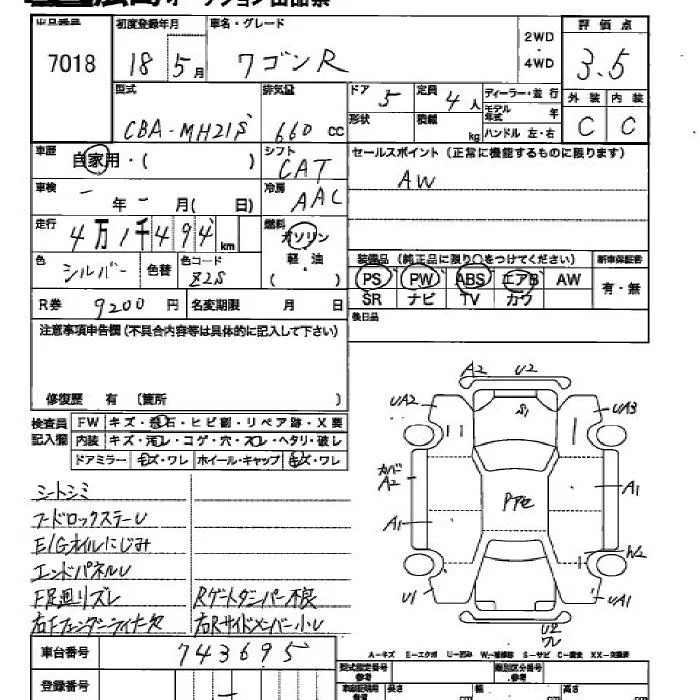 オークション出品票
出品番号 初度登録年月 車名・グレード 2WD・4WD 評価点
7018 18 5月 ワゴンR 3.5
型式 排気量 ドア 5 定員 4人 ディーラー・並行 外装 内装
CBA-MH21S 660cc 形状 積載 kg モデル年式 年 ハンドル 左・右 C C
車歴 自家用・( ) シフト CAT セールスポイント(正常に機能するものに限ります)
車検 ー年ー月( 日) 冷房 AAC AW
走行 4万1千494km 燃料 ガソリン 軽・油 ( )
色 シルバー 色替 色コード Z2S 装備品(純正品に限り○をつけてください) 新車保証書
PS PW ABS エアB AW 有・無
R券 9200円 名変期限 月 日 SR ナビ TV カワ
注意事項申告欄(不具合内容等は具体的に記入して下さい) 後日品
修復歴 有 (箇所 )
検査員記入欄 FW キズ・飛石・ヒビ割・リペア跡・X要
内装 キズ・汚レ・コゲ・穴・スレ・ヘタリ・破レ
ドアミラー キズ・ワレ ホイール・キャップ キズ・ワレ
A2 U2
UA2 S1 UA3
カバーA2 A1
PPe
A1 W2
U1 UA1
U2
ワレ
シートシミ
フードロックステーU
E/Gオイルにじみ
エンドパネルU
F足廻リズレ Rゲートダンパー不良
右Fフェンダーライナー欠 右Rサイドメンバー小U
車台番号 743695
A-キズ E-エクボ U-凹み W-補修跡 S-サビ C-腐食 XX-交換済
登録番号 ー
型式指定番号 参考 類別区分番号 参考
長さ cm 幅 cm 高さ cm